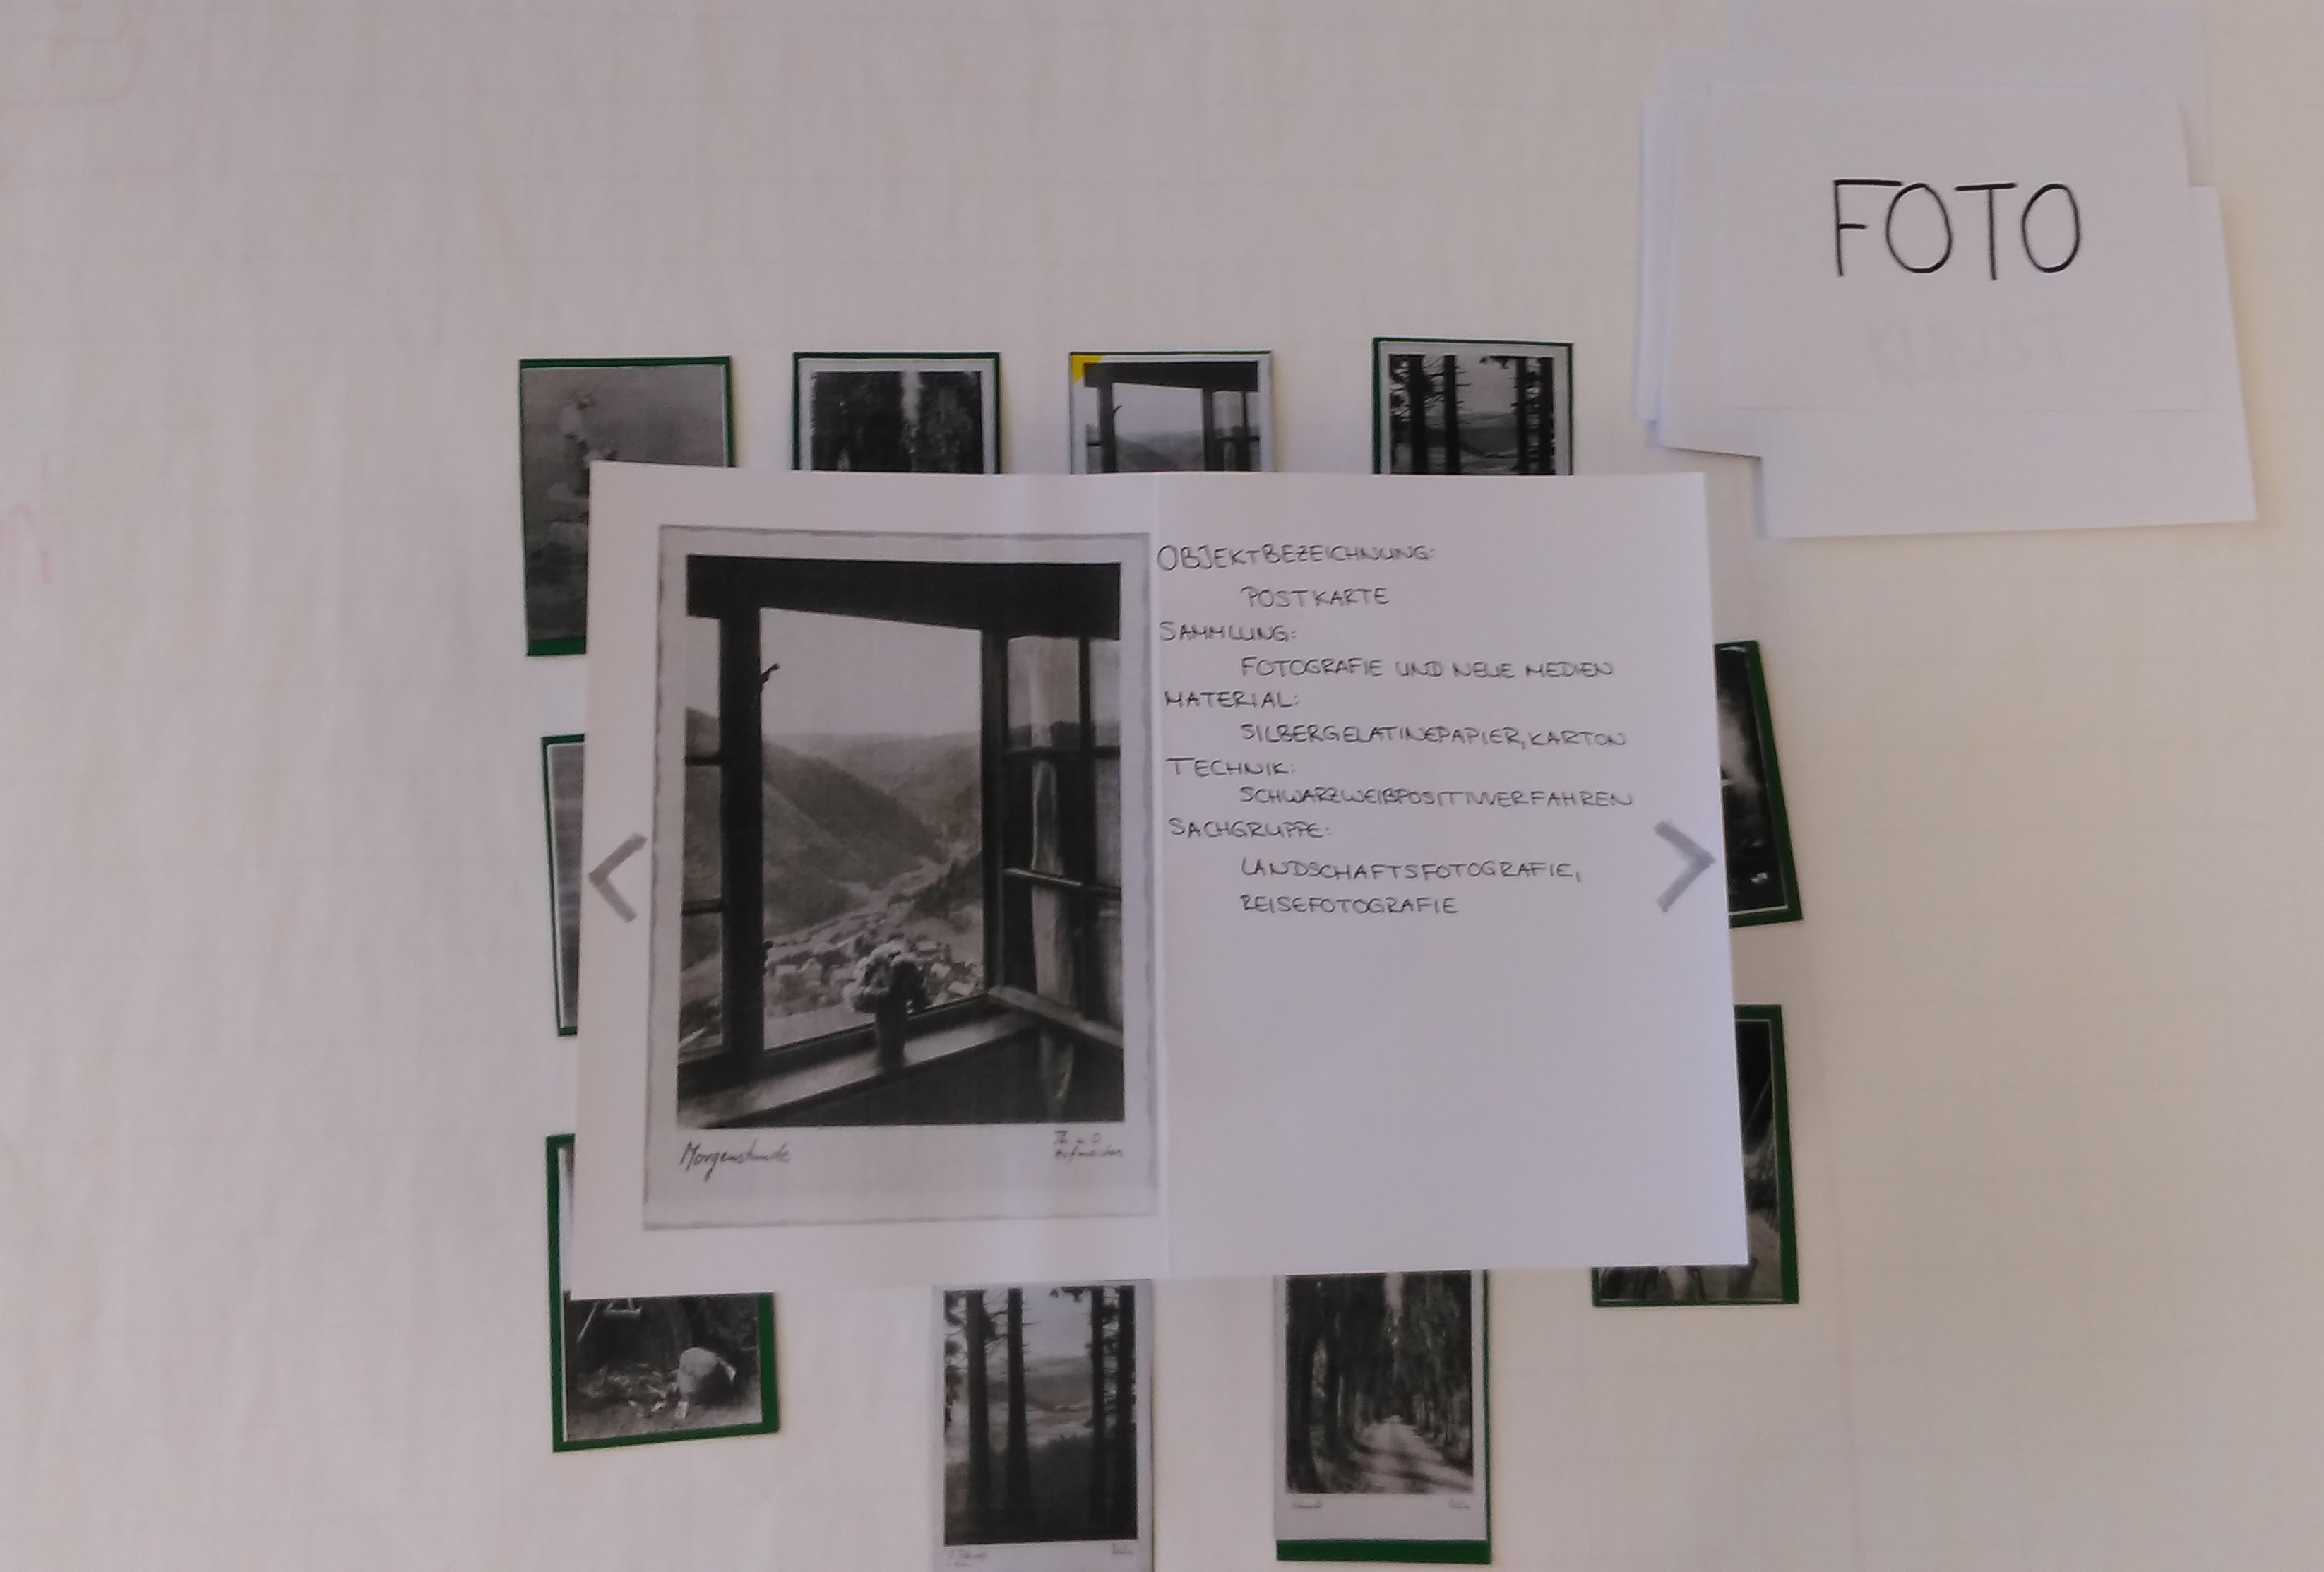 FOTO
KUNST
OBJEKTBEZEICHNUNG:
POSTKARTE
SAMMLUNG:
FOTOGRAFIE UND NEUE MEDIEN
MATERIAL:
SILBERGELATINEPAPIER, KARTON
TECHNIK:
SCHWARZWEIßPOSITIVVERFAHREN
SACHGRUPPE:
LANDSCHAFTSFOTOGRAFIE,
REISEFOTOGRAFIE
Morgenstunde